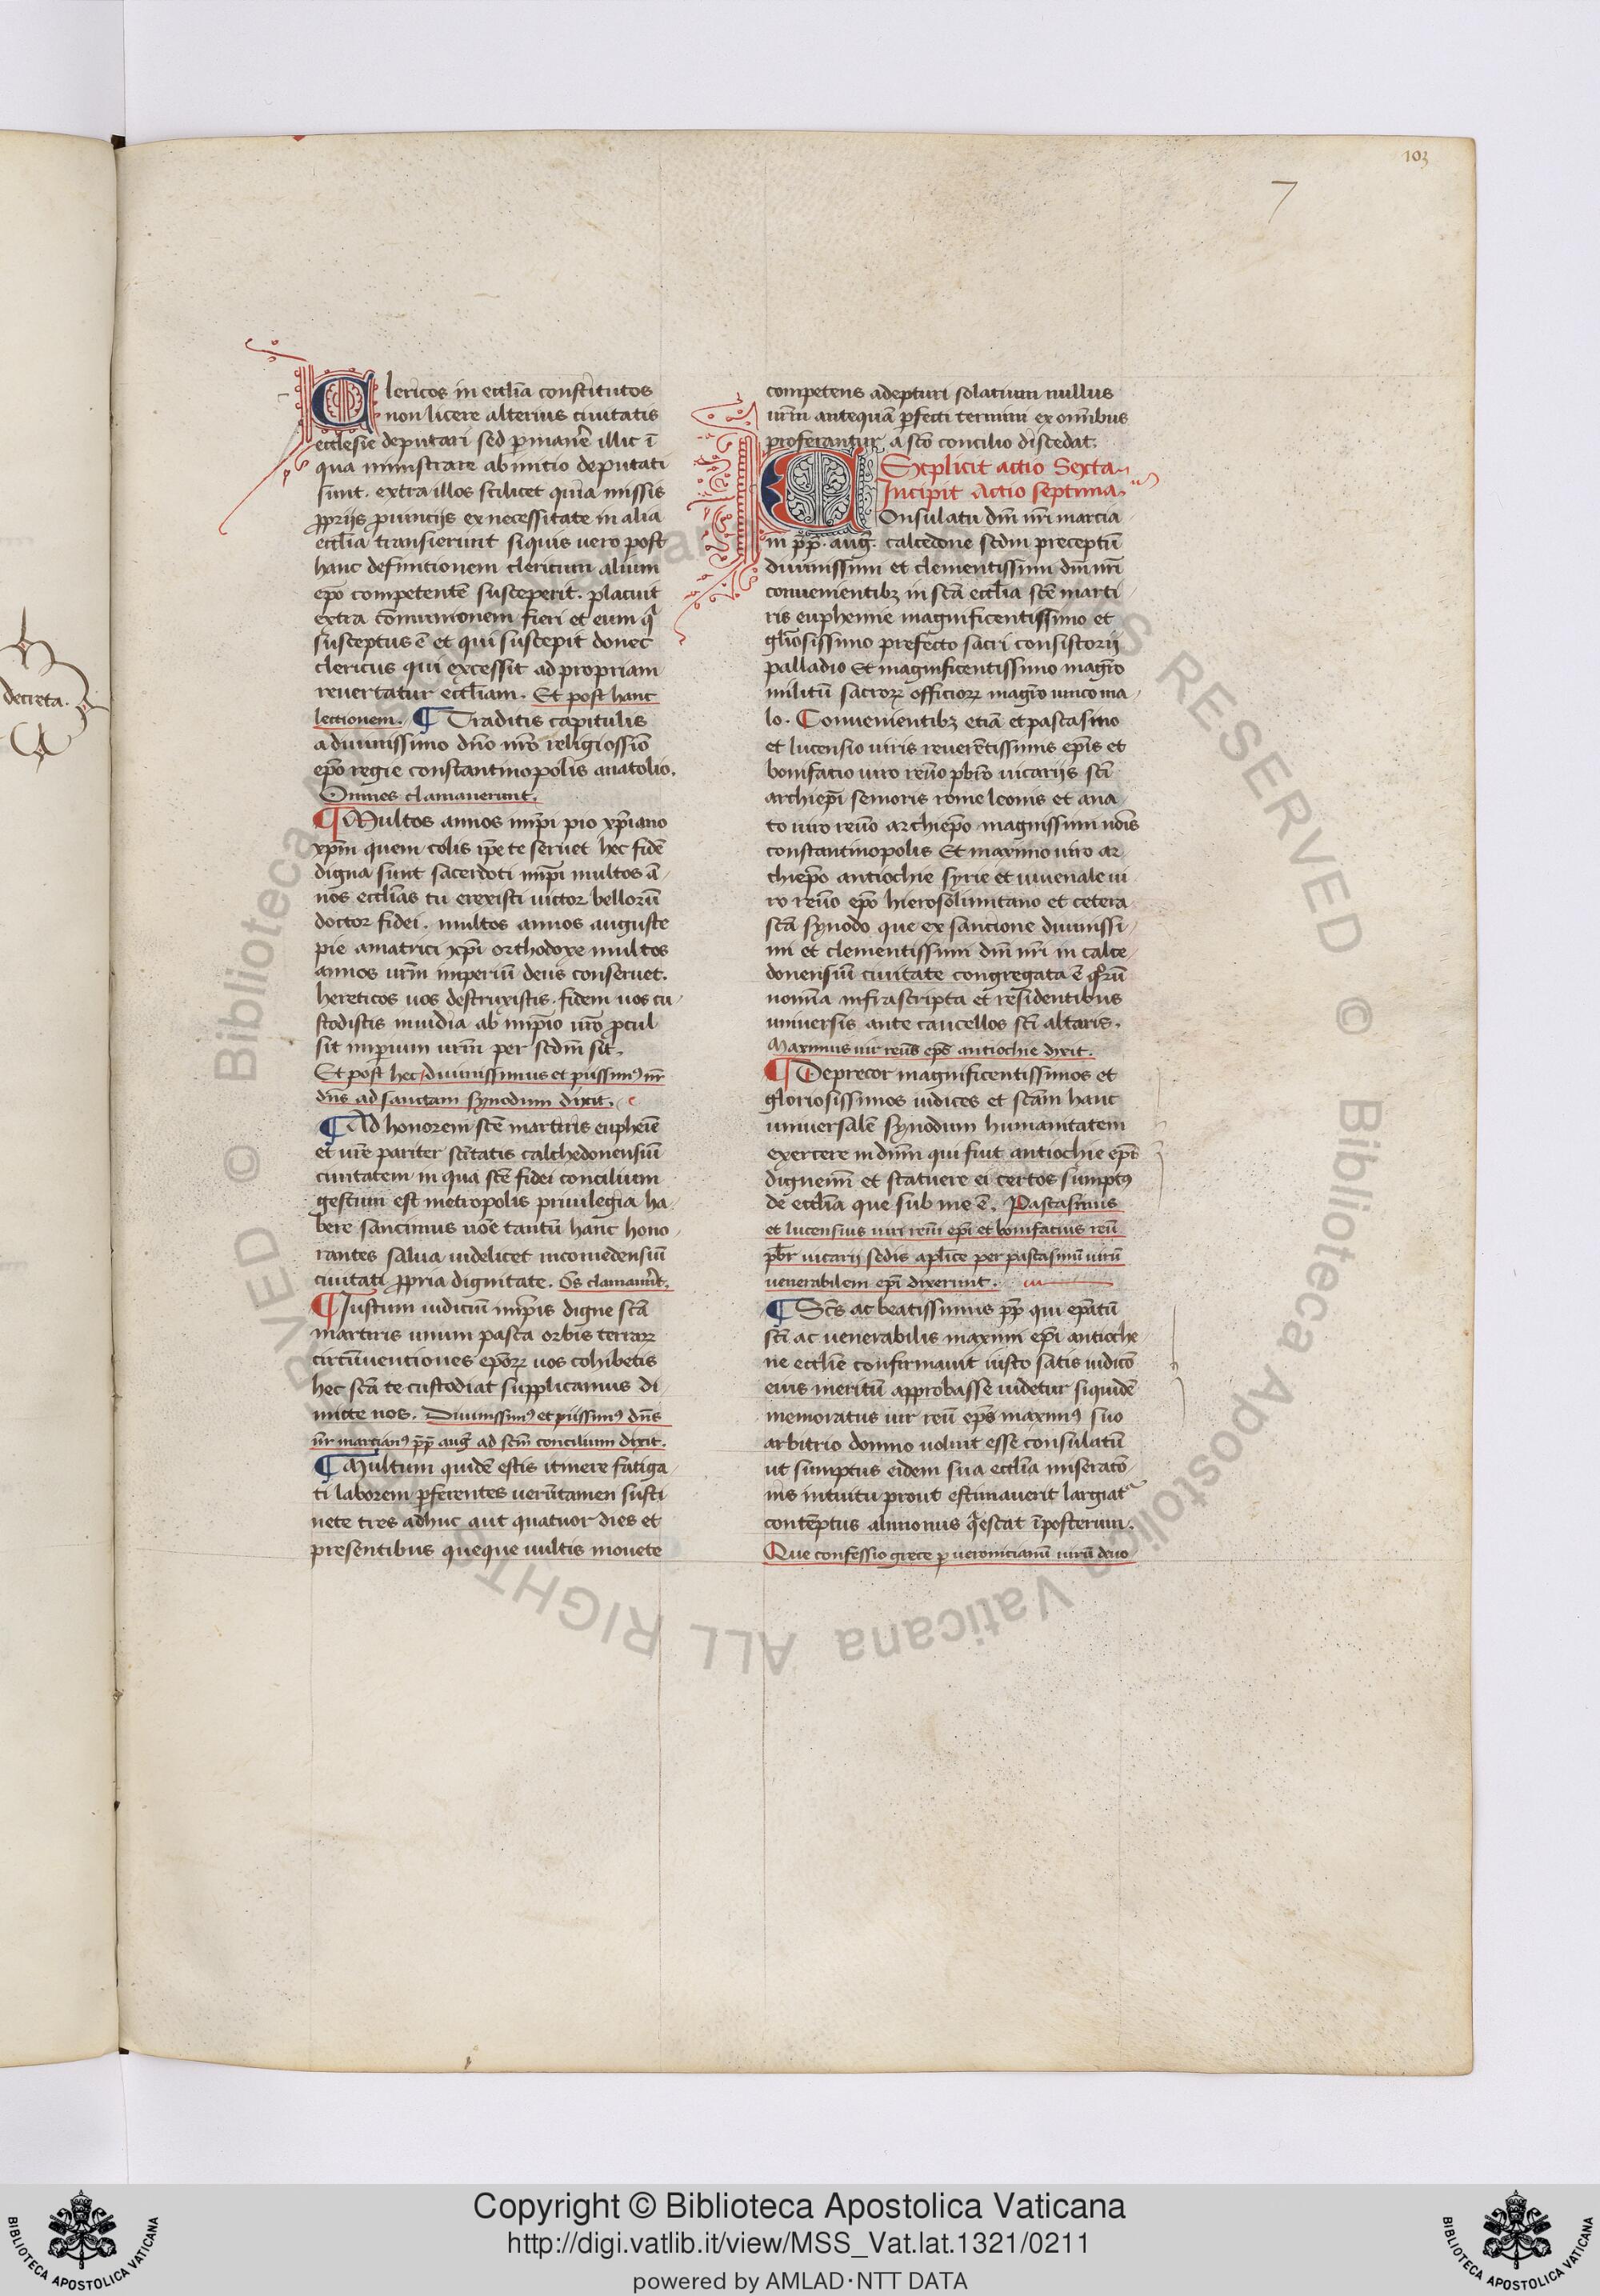 103
7
decreta.
Clericos in eccl̄ia constitutos
non licere alterius ciuitatis
ecclesie deputari sed ꝑmanēr illic ī
qua ministrare ab initio deputati
sunt. extra illos scilicet quia missis
ꝓprijs ꝓuincijs ex necessitate in alia
eccl̄ia transierunt siquis uero post
hanc definitionem clericum alium
ep̄o competentē susceperit. placuit
extra cōmunionem fieri et eum qͥ
susceptus ē et qui suscepit donec
clericus qui excessit ad propriam
reuertatur eccl̄iam. Et post hanc
lectionem. ¶ Traditis capitulis
a diuinissimo dn̄o nr̄o religiossīo
ep̄o regie constantinopolis anatolio.
Omnes clamauerunt.
¶ Multos annos imp̄i pio xp̄iano
xp̄m quem colis ip̄e te seruet hec fidē
digna sunt sacerdoti imp̄i multos ā
nos eccl̄ias tu erexisti uictor bellorū
doctor fidei. multos annos auguste
pie amatrici xp̄i orthodoxe multos
annos ur̄m imperiū deus conseruet.
hereticos uos destruxistis. fidem uos cu
stodistis inuidia ab imp̄io ur̄o ꝓcul
sit imperium urm̄ per scd̄m sit.
Et post hec diuinissimus et piissimꝰ nr̄
dn̄s ad sanctam synodum dixit.
¶ Ad honorem scē martiris euphēie
et ur̄e pariter sc̄itatis calchedonensiū
ciuitatem in qua scē fidei concilium
gestum est metropolis priuilegia ha
bere sancimus nōīe tantū hanc hono
rantes salua uidelicet nicomedensiū
ciuitati ꝓpria dignitate. Oēs clamauer̄t.
¶ Iustum iudiciū imp̄is digne scā
martiris unum pasca orbis terraꝝ
circūuentiones ep̄oꝝ uos cohibetis
hec scā te custodiat supplicamus di
mitte nos. Diuinissimꝰ et piissimꝰ dn̄s
nr̄ marcianꝰ p̄p̄ auḡ ad scm̄ concilium dixit.
¶ Multum quidē estis itinere fatiga
ti laborem ꝑferentes uerūtamen susti
nete tres adhuc aut quatuor dies et
presentibus queque uultis mouete
competens adepturi solatium nullus
ur̄m antequā ꝑfecti termini ex oīnibus
proferantur a scō concilio discedat.
Explicit actio Sexta
Incipit Actio septima.
Consulatu dn̄i nr̄i marcia
ni p̄p̄. auḡ. calcedone scd̄m preceptū
diuinissimi et clementissimi dn̄i nr̄i
conuenientibꝫ in scā eccl̄ia scē marti
ris euphemie magnificentissimo et
gl̄iosissimo prefecto sacri consistorij
palladio Et magnificentissimo magr̄o
militū sacroꝝ officioꝝ magr̄o uincoma
lo. Conuenientibꝫ etiā et pascasino
et lucensio uiris reuerētissimis ep̄is et
bonifacio uiro reuē̄o pb̄r̄o uicarijs scī
archiep̄i senioris rome leonis et ana
to uiro reuē̄o archiep̄o magnissimi nōis
constantinopolis Et maximo uiro ar
chiep̄o antiochie syrie et iuuenale ui
ro reuē̄o ep̄o hierosolimitano et cetera
scā synodo que ex sanctione diuinissi
mi et clementissimi dn̄i nr̄i in calce
donensiū ciuitate congregata ē qͦrū
nomīa infrascripta et residentibus
uniuersis ante cancellos scī altaris.
Maximus uir reuē̄s ep̄s antiochie dixit.
¶ Deprecor magnificentissimos et
gloriosissimos iudices et scām hanc
uniuersalē synodum humanitatem
exercere in dn̄m qui fuit antiochie ep̄s
dignem̄ et statuere ei certos sumptꝰ
de eccl̄ia que sub me ē. Pascasinus
et lucensius uiri reuē̄i ep̄i et bonifacius reuē̄
pb̄r uicarij sedis apl̄ice per pascasinū uirū
uenerabilem ep̄i dixerunt.
¶ Scs̄ ac beatissimus p̄p̄ qui ep̄atū
scī ac uenerabilis maximi ep̄i antioche
ne eccl̄ie confirmauit iusto satis iudicō
eius meritū approbasse uidetur siquidē
memoratus uir reuē̄ ep̄s maximꝰ suo
arbitrio domno uoluit esse consulatū
ut sumptus eidem sua eccl̄ia miseratō
nis intuitu prout estimauerit largiatᷣ
contēptus alimonijs qͥescat īposterum.
Que confessio grece ꝑ ueronicianū uirū deuo
Copyright © Biblioteca Apostolica Vaticana
http://digi.vatlib.it/view/MSS_Vat.lat.1321/0211
powered by AMLAD·NTT DATA
BIBLIOTECA APOSTOLICA VATICANA
BIBLIOTECA APOSTOLICA VATICANA
© Biblioteca Apostolica Vaticana ALL RIGHTS RESERVED